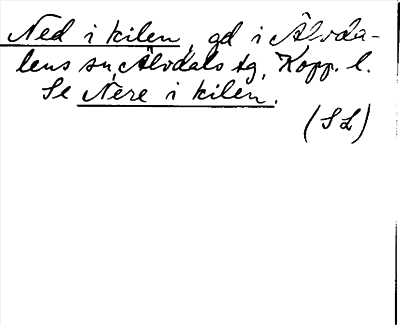 Ned i kilen, gd i Älvda-
lens sn, Älvdals tg, Kopp. l.
Se Nere i kilen.
(SL)